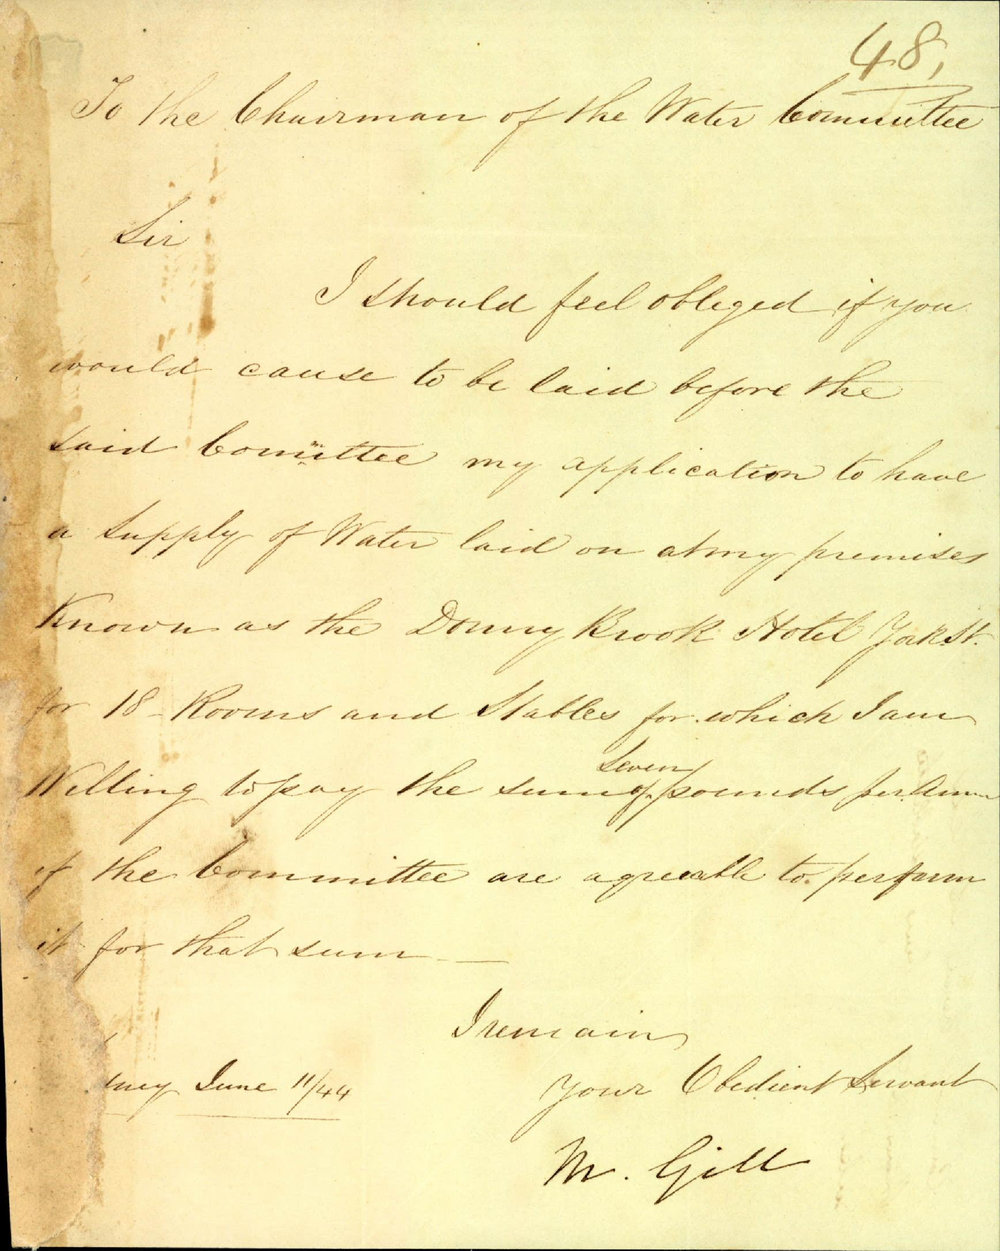 48,
To the Chairman of the Water Committee
Sir
I should feel obleged if you
would cause to be laid before the
said Committee my application to have
a supply of Water laid on at my premises
Known as the Donny Brook Hotel York St.
for 18 Rooms and Stables for which I am
Willing to pay the sum of seven pounds per Annum
if the Committee are agreeable to perform
it for that sum
I remain
dney June 11/44
Your Obedient Servant
M. Gill